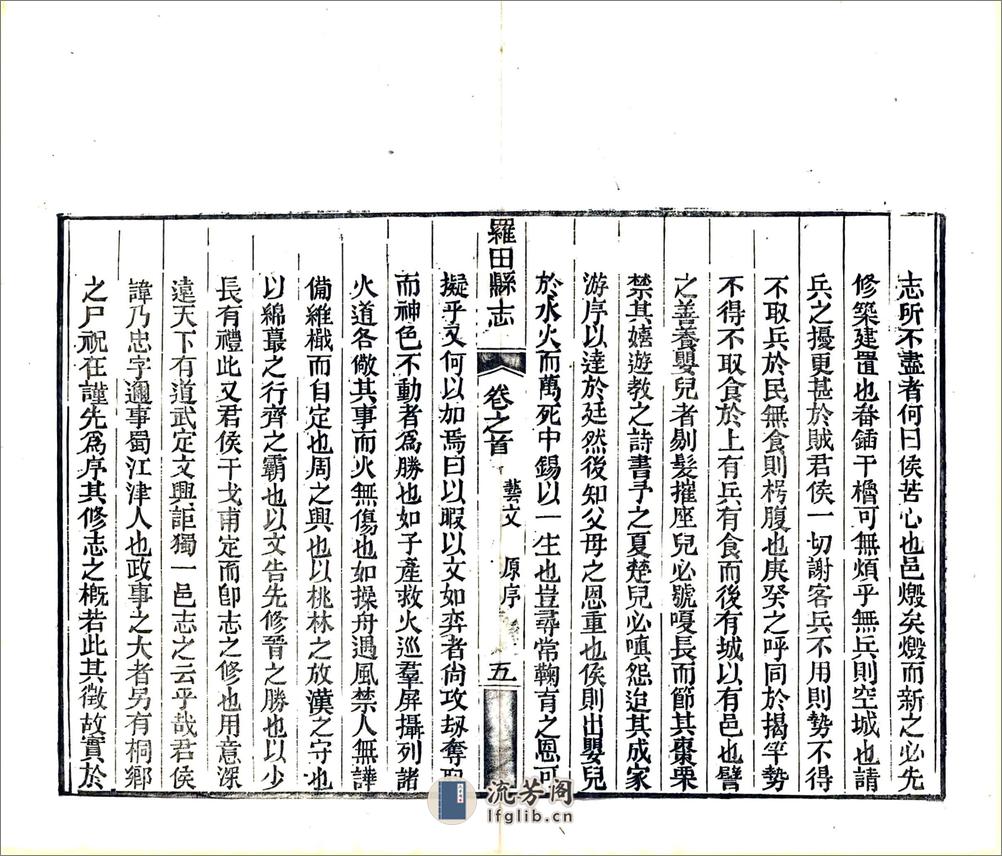 志所不盡者何曰侯苦心也邑燬矣燬而新之必先
修築建置也畚鍤干櫓可無煩乎無兵則空城也請
兵之擾更甚於賊君侯一切謝客兵不用則勢不得
不取兵於民無食則枵腹也庚癸之呼同於揭竿勢
不得不取食於上有兵有食而後有城以有邑也譬
之善養嬰兒者剔髮摧座兒必號嗄長而節其棗栗
禁其嬉遊教之詩書予之夏楚兒必嗔怨迨其成家
游序以達於廷然後知父母之恩重也侯則出嬰兒
於水火而萬死中錫以一生也豈尋常鞠育之恩可
羅田縣志
卷之首
藝文 原序
五
擬乎又何以加焉曰以暇以文如弈者尙攻刼奪取
而神色不動者爲勝也如子產救火巡羣屏攝列諸
火道各儆其事而火無傷也如操舟遇風禁人無譁
備維檝而自定也周之興也以桃林之放漢之守也
以綿蕞之行齊之霸也以文告先修晉之勝也以少
長有禮此又君侯干戈甫定而卽志之修也用意深
遠天下有道武定文興詎獨一邑志之云乎哉君侯
諱乃忠字邇事蜀江津人也政事之大者另有桐鄉
之尸祝在謹先爲序其修志之槪若此其徵故實於
流芳阁
lfglib.cn